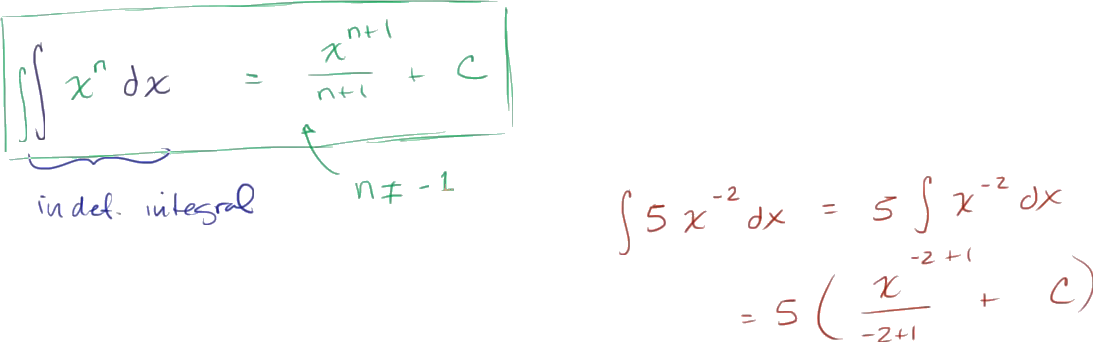 ∫∫ xⁿ dx = xⁿ⁺¹/n+1 + C
n ≠ -1
indef. integral
∫ 5 x⁻² dx = 5 ∫ x⁻² dx
= 5 ( x⁻²⁺¹/-2+1 + C)